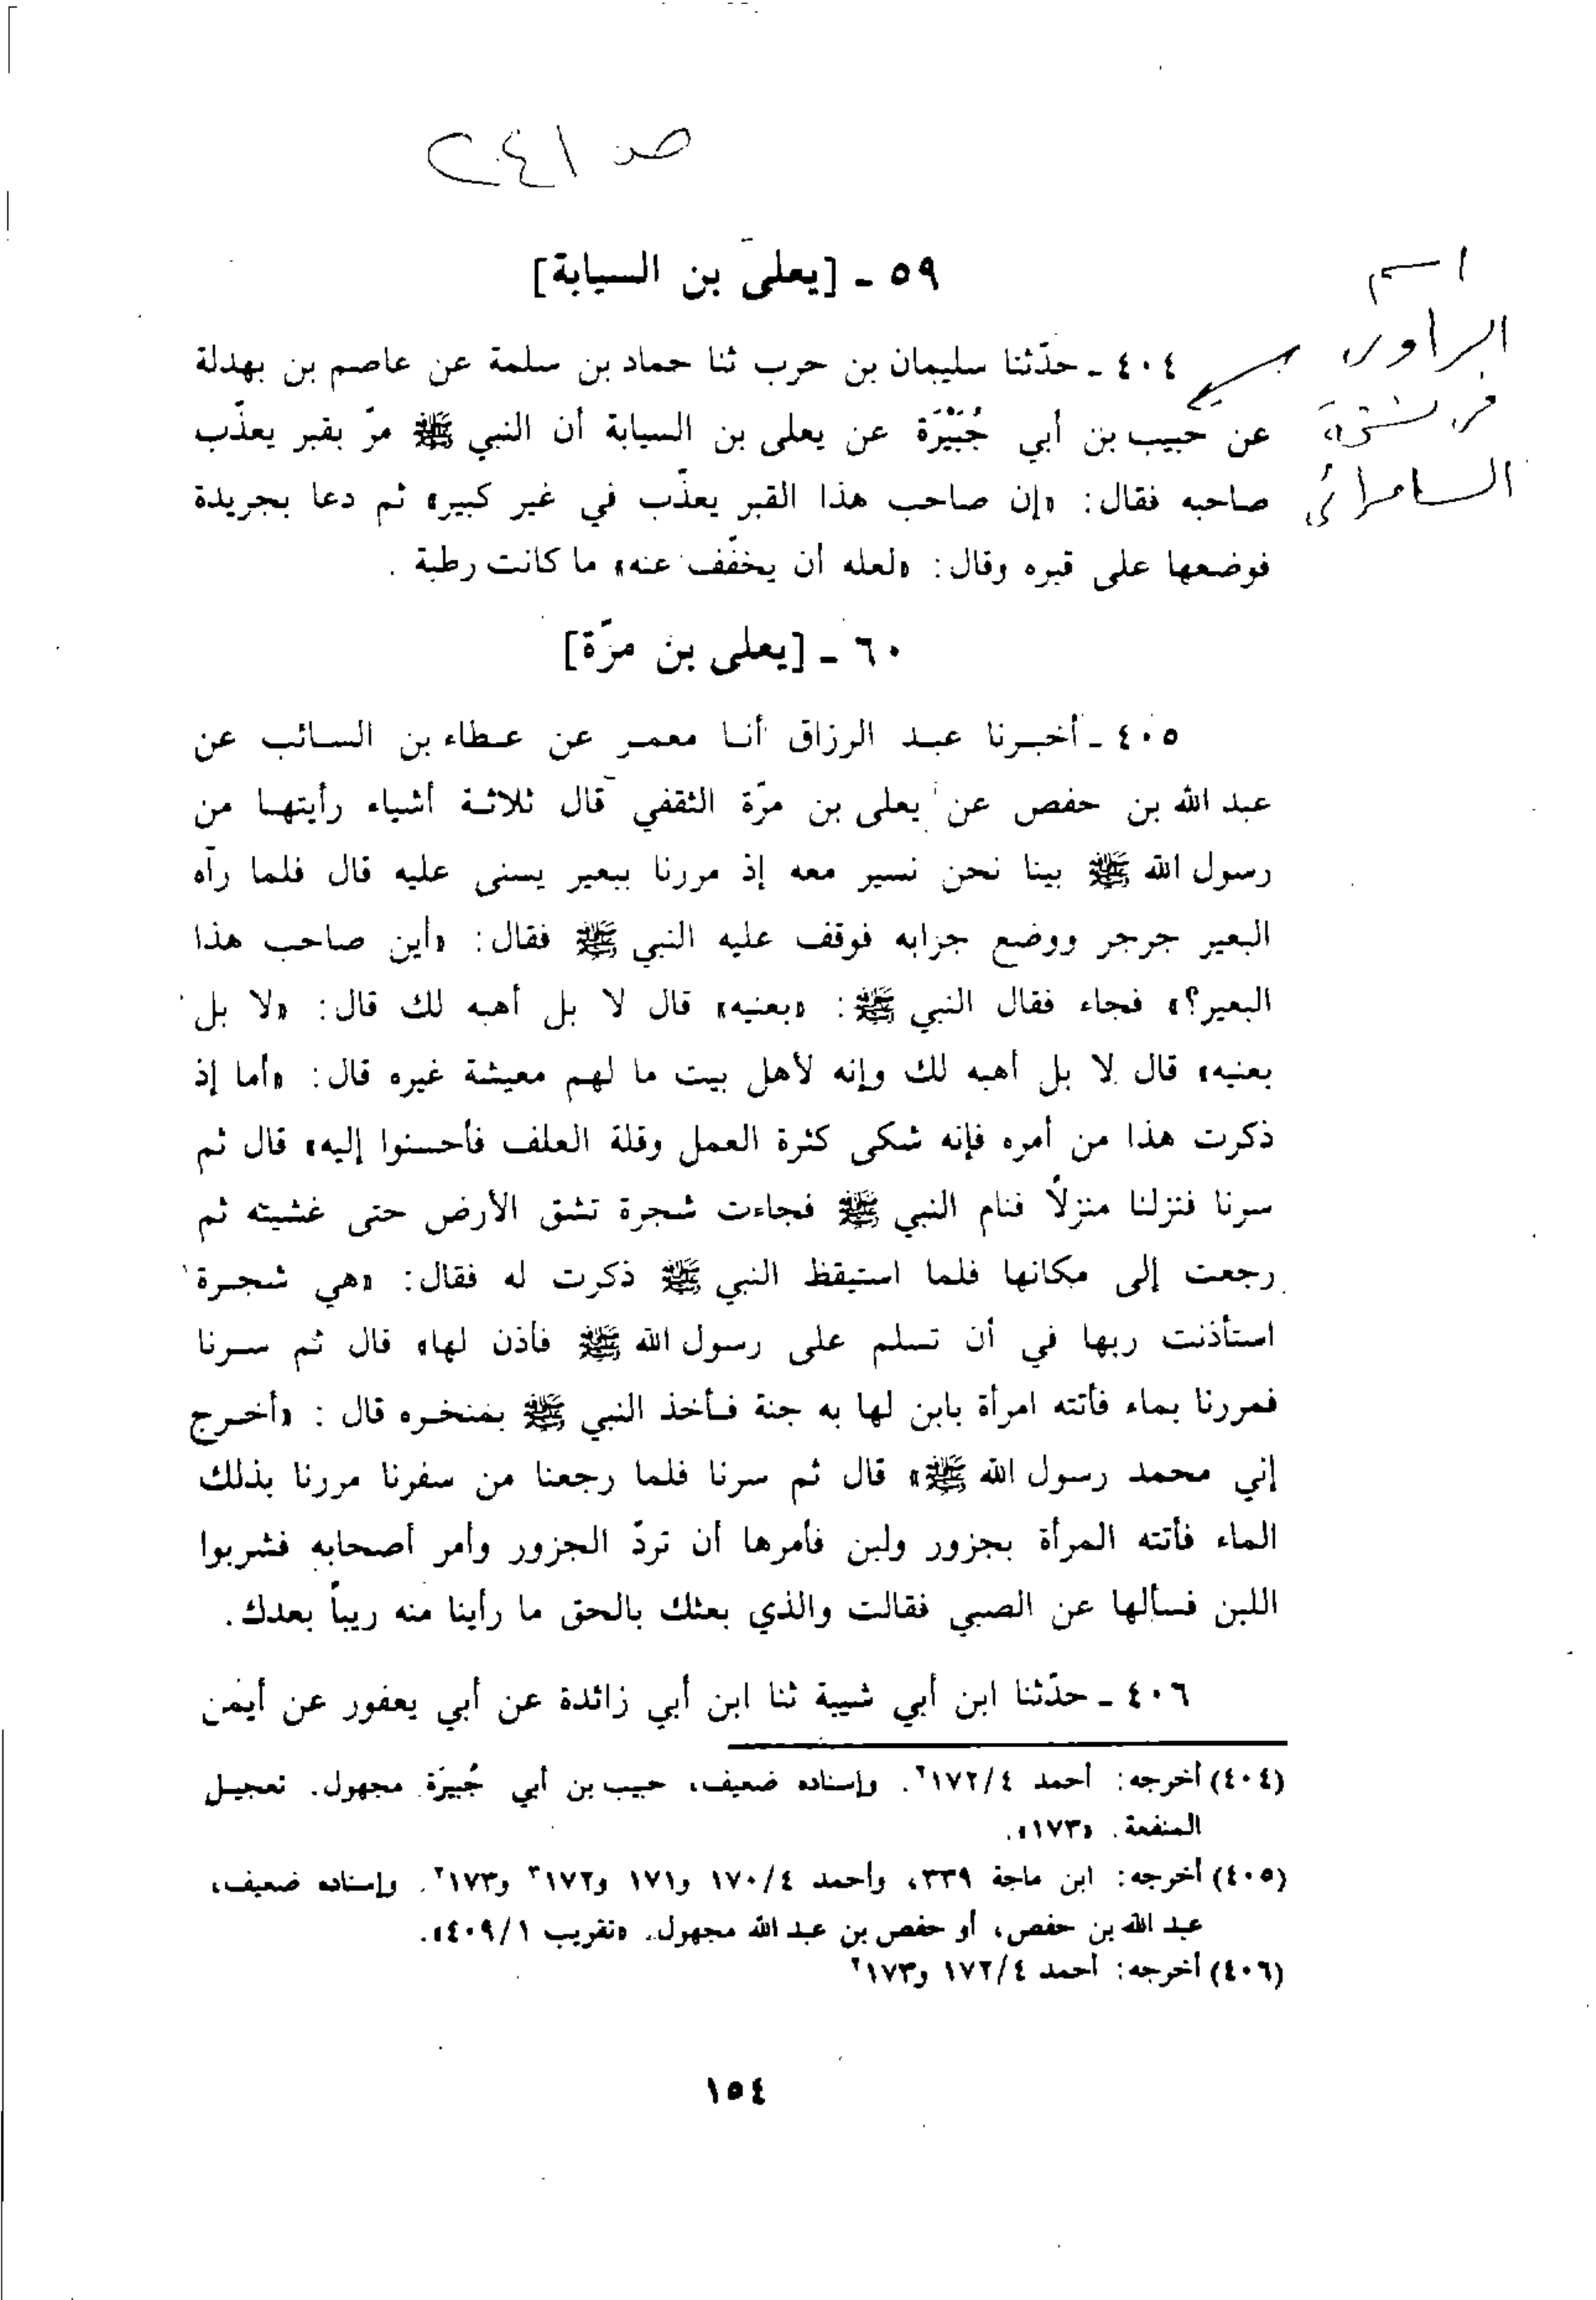 صـ ٢٤١
٥٩ - [يعلى بن السيابة]
اسم
الراوى
فى نسخة
السامرائى
٤٠٤ - حدّثنا سليمان بن حرب ثنا حماد بن سلمة عن عاصم بن بهدلة
عن حبيب بن أبي جُبَيْرَة عن يعلى بن السيابة أن النبي ﷺ مرّ بقبر يعذّب
صاحبه فقال: «إن صاحب هذا القبر يعذّب في غير كبير» ثم دعا بجريدة
فوضعها على قبره وقال: «لعله أن يخفّف عنه» ما كانت رطبة .
٦٠ - [يعلى بن مرّة]
٤٠٥ - أخبرنا عبد الرزاق أنا معمر عن عطاء بن السائب عن
عبد الله بن حفص عن يعلى بن مرّة الثقفي قال ثلاثة أشياء رأيتها من
رسول الله ﷺ بينا نحن نسير معه إذ مررنا ببعير يسنى عليه قال فلما رآه
البعير جرجر ووضع جرابه فوقف عليه النبي ﷺ فقال: «أين صاحب هذا
البعير؟» فجاء فقال النبي ﷺ: «بعنيه» قال لا بل أهبه لك قال: «لا بل
بعنيه» قال لا بل أهبه لك وإنه لأهل بيت ما لهم معيشة غيره قال: «أما إذ
ذكرت هذا من أمره فإنه شكى كثرة العمل وقلة العلف فأحسنوا إليه» قال ثم
سرنا فنزلنا منزلًا فنام النبي ﷺ فجاءت شجرة تشق الأرض حتى غشيته ثم
رجعت إلى مكانها فلما استيقظ النبي ﷺ ذكرت له فقال: «هي شجرة
استأذنت ربها في أن تسلم على رسول الله ﷺ فأذن لها» قال ثم سرنا
فمررنا بماء فأتته امرأة بابن لها به جنة فأخذ النبي ﷺ بمنخره قال : «أخرج
إني محمد رسول الله ﷺ» قال ثم سرنا فلما رجعنا من سفرنا مررنا بذلك
الماء فأتته المرأة بجزور ولبن فأمرها أن تردّ الجزور وأمر أصحابه فشربوا
اللبن فسألها عن الصبي فقالت والذي بعثك بالحق ما رأينا منه ريباً بعدك.
٤٠٦ - حدّثنا ابن أبي شيبة ثنا ابن أبي زائدة عن أبي يعفور عن أيمن
(٤٠٤) أخرجه: أحمد ١٧٢/٤٢. وإسناده ضعيف، حبيب بن أبي جُبيرَة مجهول. تعجيل
المنفعة. «١٧٣».
(٤٠٥) أخرجه: ابن ماجة ٣٣٩، وأحمد ١٧٠/٤ و١٧١ و١٧٢٣ و١٧٣٢. وإسناده ضعيف،
عبد الله بن حفص، أو حفص بن عبد الله مجهول. «تقريب ٤٠٩/١».
(٤٠٦) أخرجه: أحمد ١٧٢/٤ و١٧٣٢
١٥٤